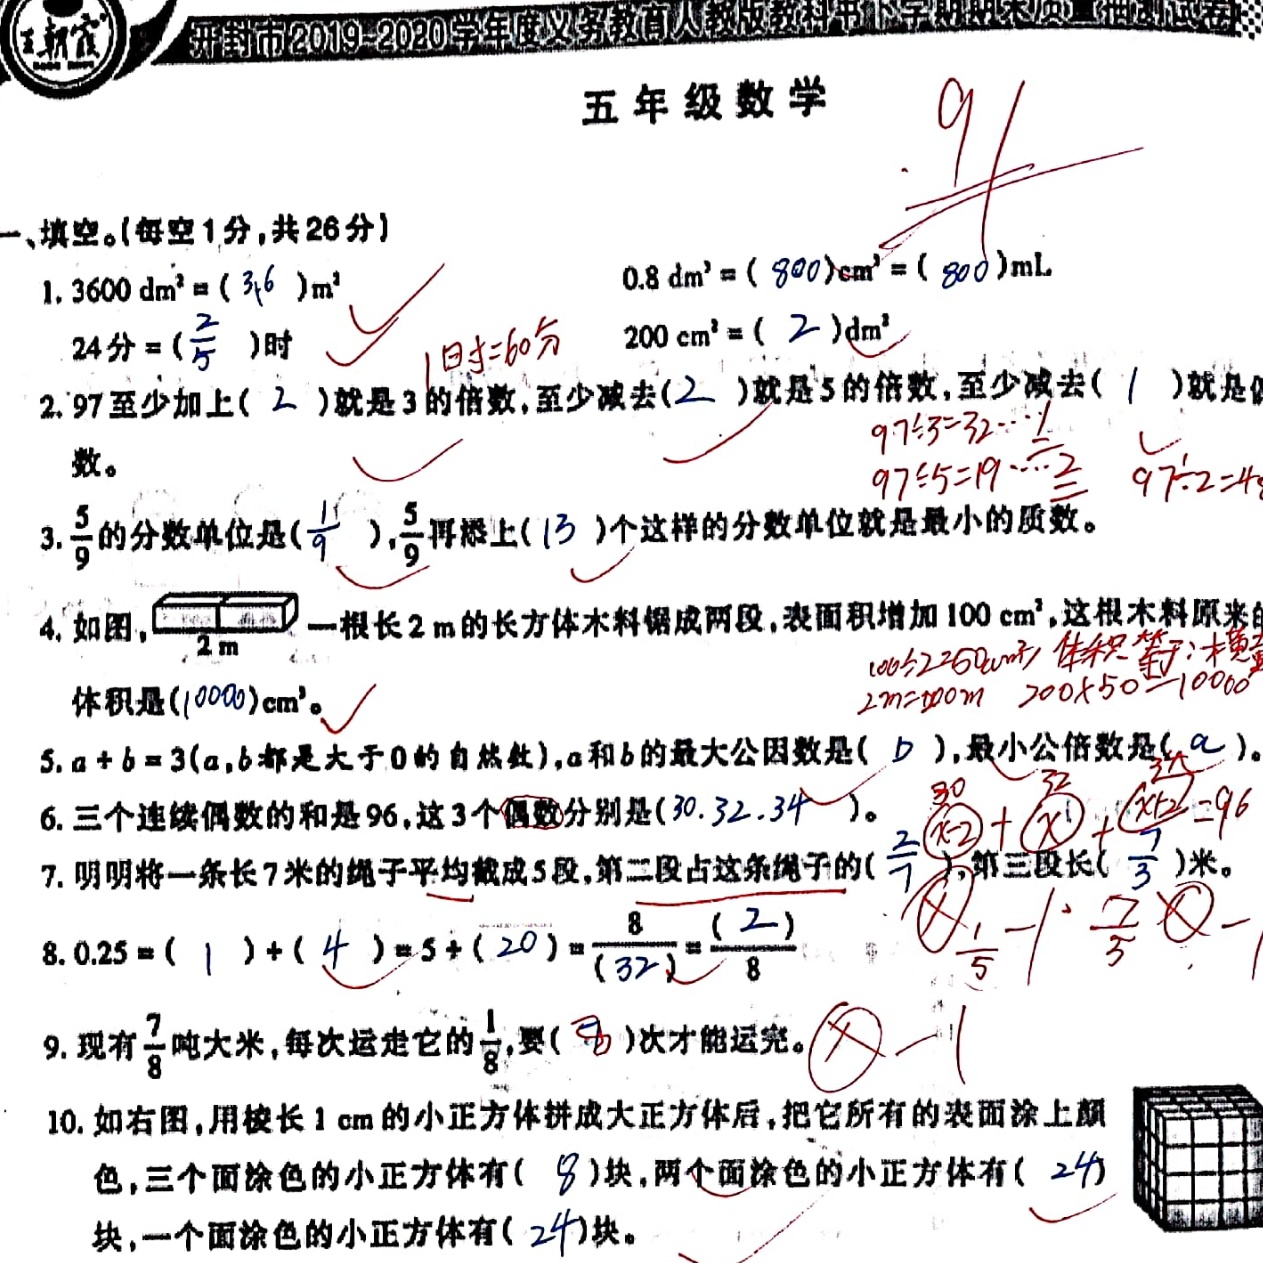 王朝霞
开封市2019-2020学年度义务教育人教版教科书下学期期末质量抽测试卷
五年级数学
91
一、填空。(每空1分,共26分)
1. 3600 dm³ = ( 3.6 )m³ 0.8 dm³ = ( 800 )cm³ = ( 800 )mL
24分 = ( 2/5 )时 200 cm² = ( 2 )dm²
1时=60分
2. 97至少加上( 2 )就是3的倍数,至少减去( 2 )就是5的倍数,至少减去( 1 )就是
97÷3=32……1
数。
97÷5=19……2 97÷2=48
3. 5/9的分数单位是( 1/9 ),5/9再添上( 13 )个这样的分数单位就是最小的质数。
4. 如图, 一根长2 m的长方体木料锯成两段,表面积增加100 cm²,这根木料原来的
2 m
100÷2=50(cm²) 体积等于:横
体积是(10000)cm³。
2m=200m 200×50=10000
5. a + b = 3(a,b都是大于0的自然数),a和b的最大公因数是( b ),最小公倍数是( a )。
30 32 34
6. 三个连续偶数的和是96,这3个偶数分别是(30.32.34 )。 (x-2)+(x)+(x+2)=96
7. 明明将一条长7米的绳子平均截成5段,第二段占这条绳子的( 2/7 ),第三段长( 7/3 )米。
1/5 -1 7/5 -1
8. 0.25 = ( 1 ) ÷ ( 4 ) = 5 ÷ ( 20 ) = 8/(32) = (2)/8
9. 现有7/8吨大米,每次运走它的1/8,要( )次才能运完。 -1
10. 如右图,用棱长1 cm的小正方体拼成大正方体后,把它所有的表面涂上颜
色,三个面涂色的小正方体有( 8 )块,两个面涂色的小正方体有( 24 )
块,一个面涂色的小正方体有( 24 )块。